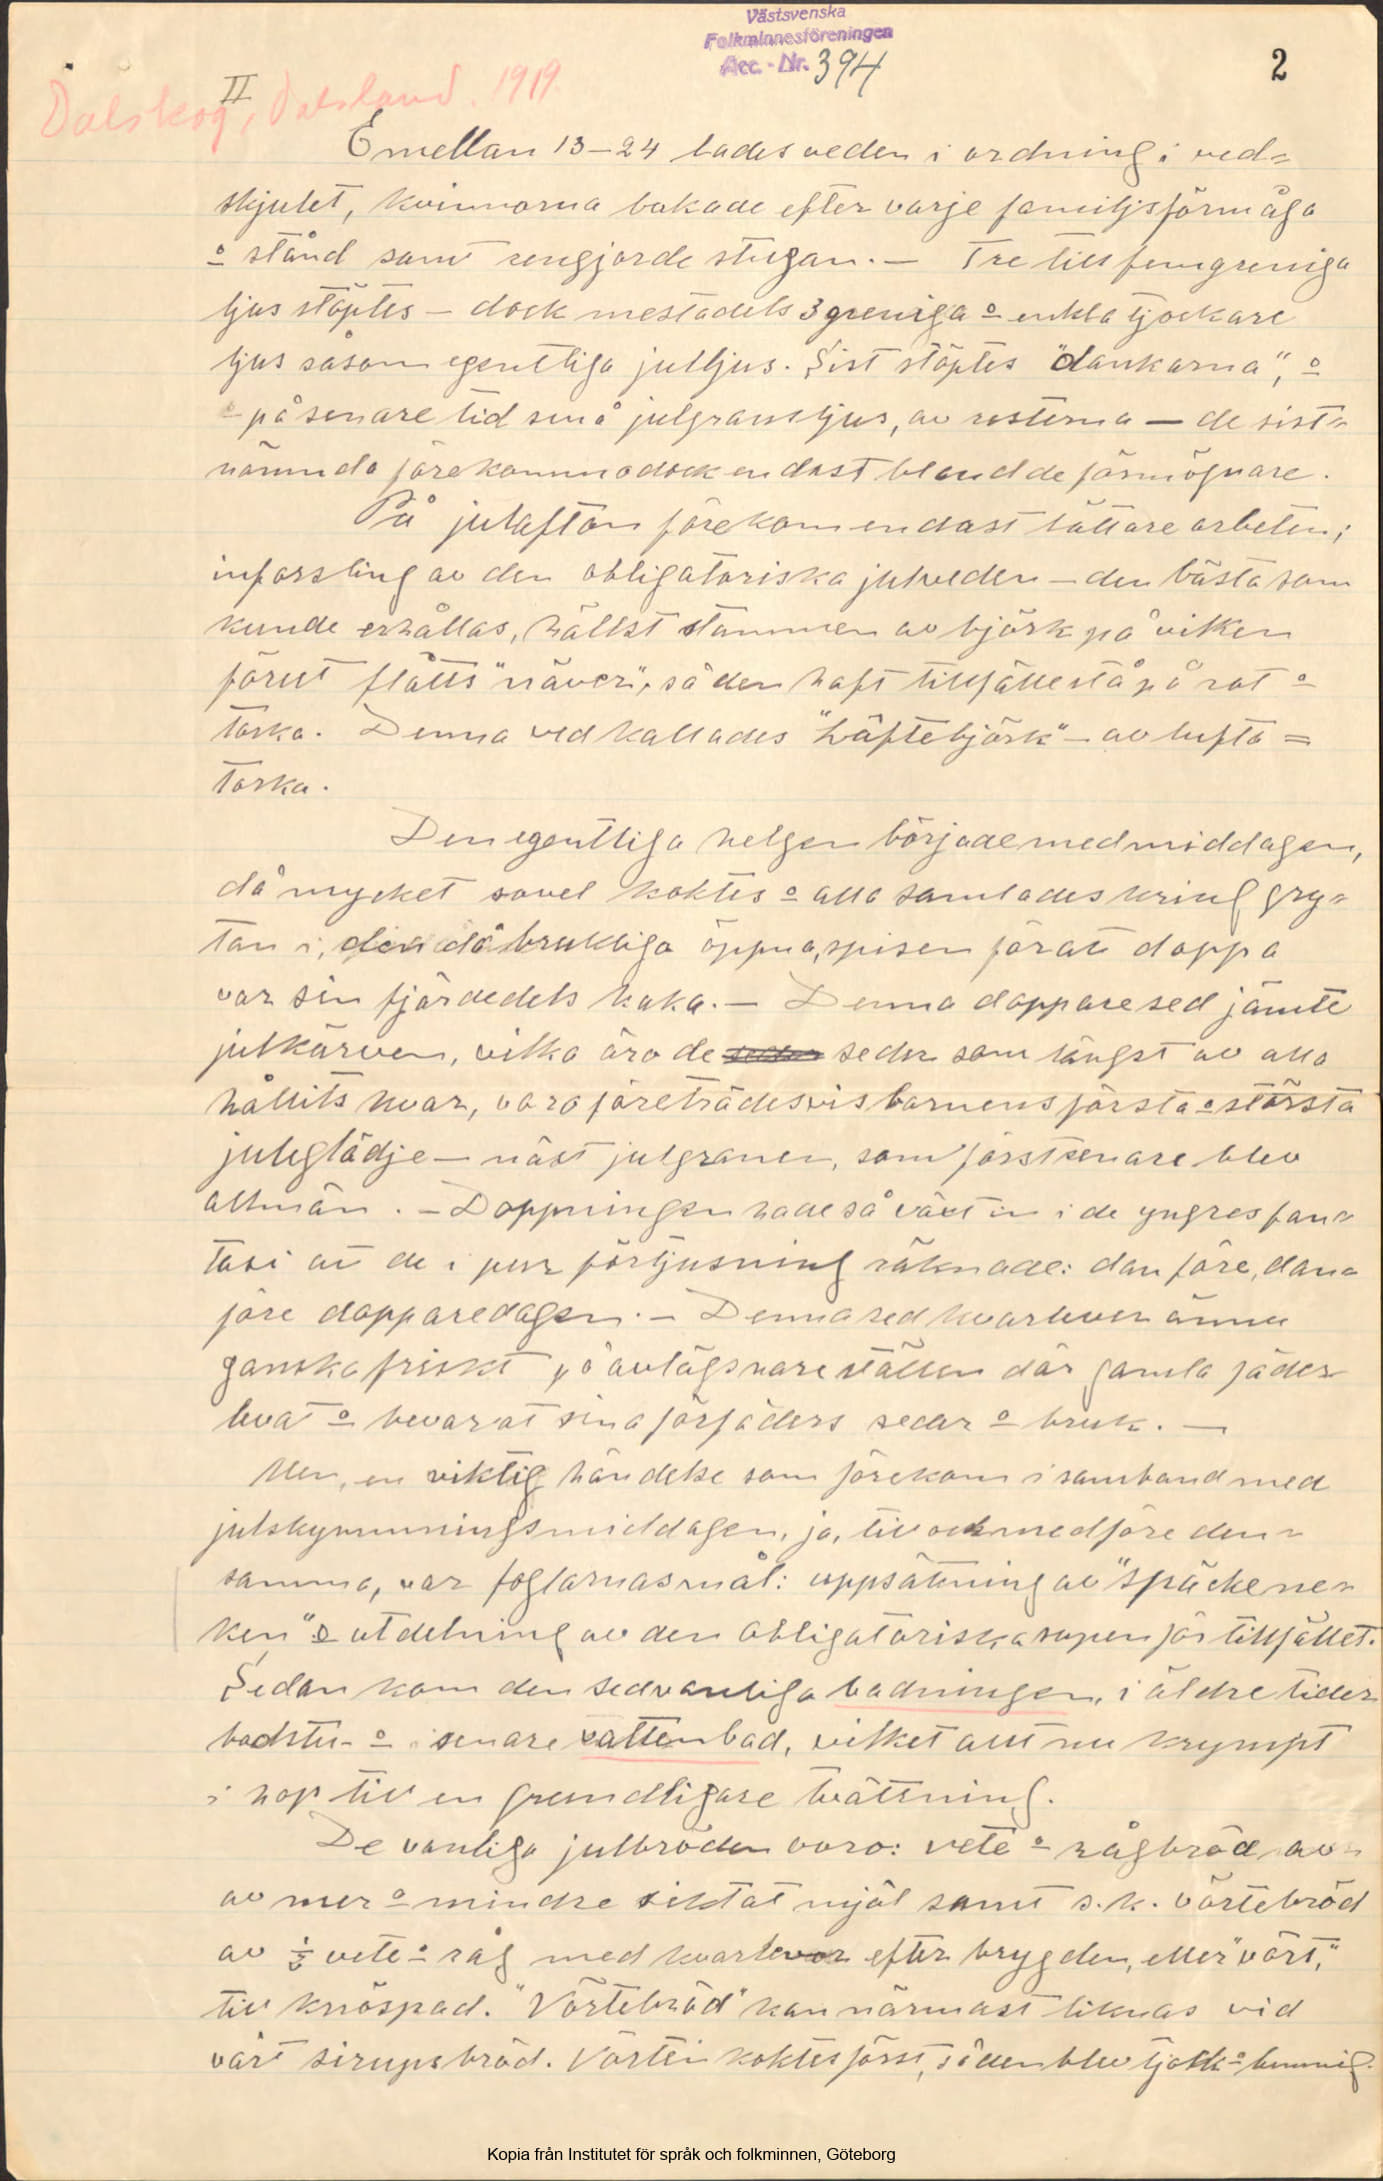 Västsvenska
Folkminnesföreningen
Acc. - Nr. 394
2
II
Dalskog, Dalsland. 1919.
Emellan 13–24 lades veden i ordning i ved=
skjulet, kvinnorna bakade efter varje familjs förmåga
o stånd samt rengjorde stugan. — Tre till femgreniga
ljus stöptes – dock mestadels 3 greniga o enkla tjockare
ljus såsom egentliga julljus. Sist stöptes "dankarna", o
på senare tid små julgransljus, av resterna — de sist=
nämnda förekommo dock endast bland de förmögnare.
På julafton förekom endast lättare arbeten;
inforsling av den obligatoriska julveden – den bästa som
kunde erhållas, hällst stammen av björk på vilken
förut flåtts "näver", så den haft tillfälle stå på rot o
torka. Denna ved kallades "Löftebjörk" – av lufta =
torka.
Den egentliga helgen började med middagen,
då mycket sovel koktes o alla samlades kring gry=
tan i, den då brukliga öppna, spisen för att doppa
var sin fjärdedels kaka. — Denna dopparesed jämte
julkärven, vilka äro de seder som längst av alla
hållits kvar, voro företrädesvis barnens första o största
juleglädje – näst julgranen, som först senare blev
allmän. – Doppningen hade så växt in i de yngres fan=
tasi att de i pur förtjusning räknade: dan före, dan=
före dopparedagen. – Denna sed kvarlever ännu
ganska friskt på avlägsnare ställen där gamla fäder
levat o bevarat sina förfäders seder o bruk. —
Men, en viktig händelse som förekom i samband med
julskymmningsmiddagen, ja, till och med före den=
samma, var foglarnas mål: uppsättning av "späckene=
ken" o utdelning av den obligatoriska supen för tillfället.
Sedan kom den sedvanliga badningen, i äldre tider
badstu- o i senare vattenbad, vilket allt nu krympt
i hop till en grundligare tvättning.
De vanliga julbröden voro: vete o rågbröd av
av mer o mindre siktat mjöl samt s.k. vörtebröd
av ½ vete o råg med kvarlevor efter brygden, eller "vört,"
till knöspad. "Vörtebröd" kan närmast liknas vid
vårt sirupsbröd. Vörten koktes först, så den blev tjock o lummig.
Kopia från Institutet för språk och folkminnen, Göteborg